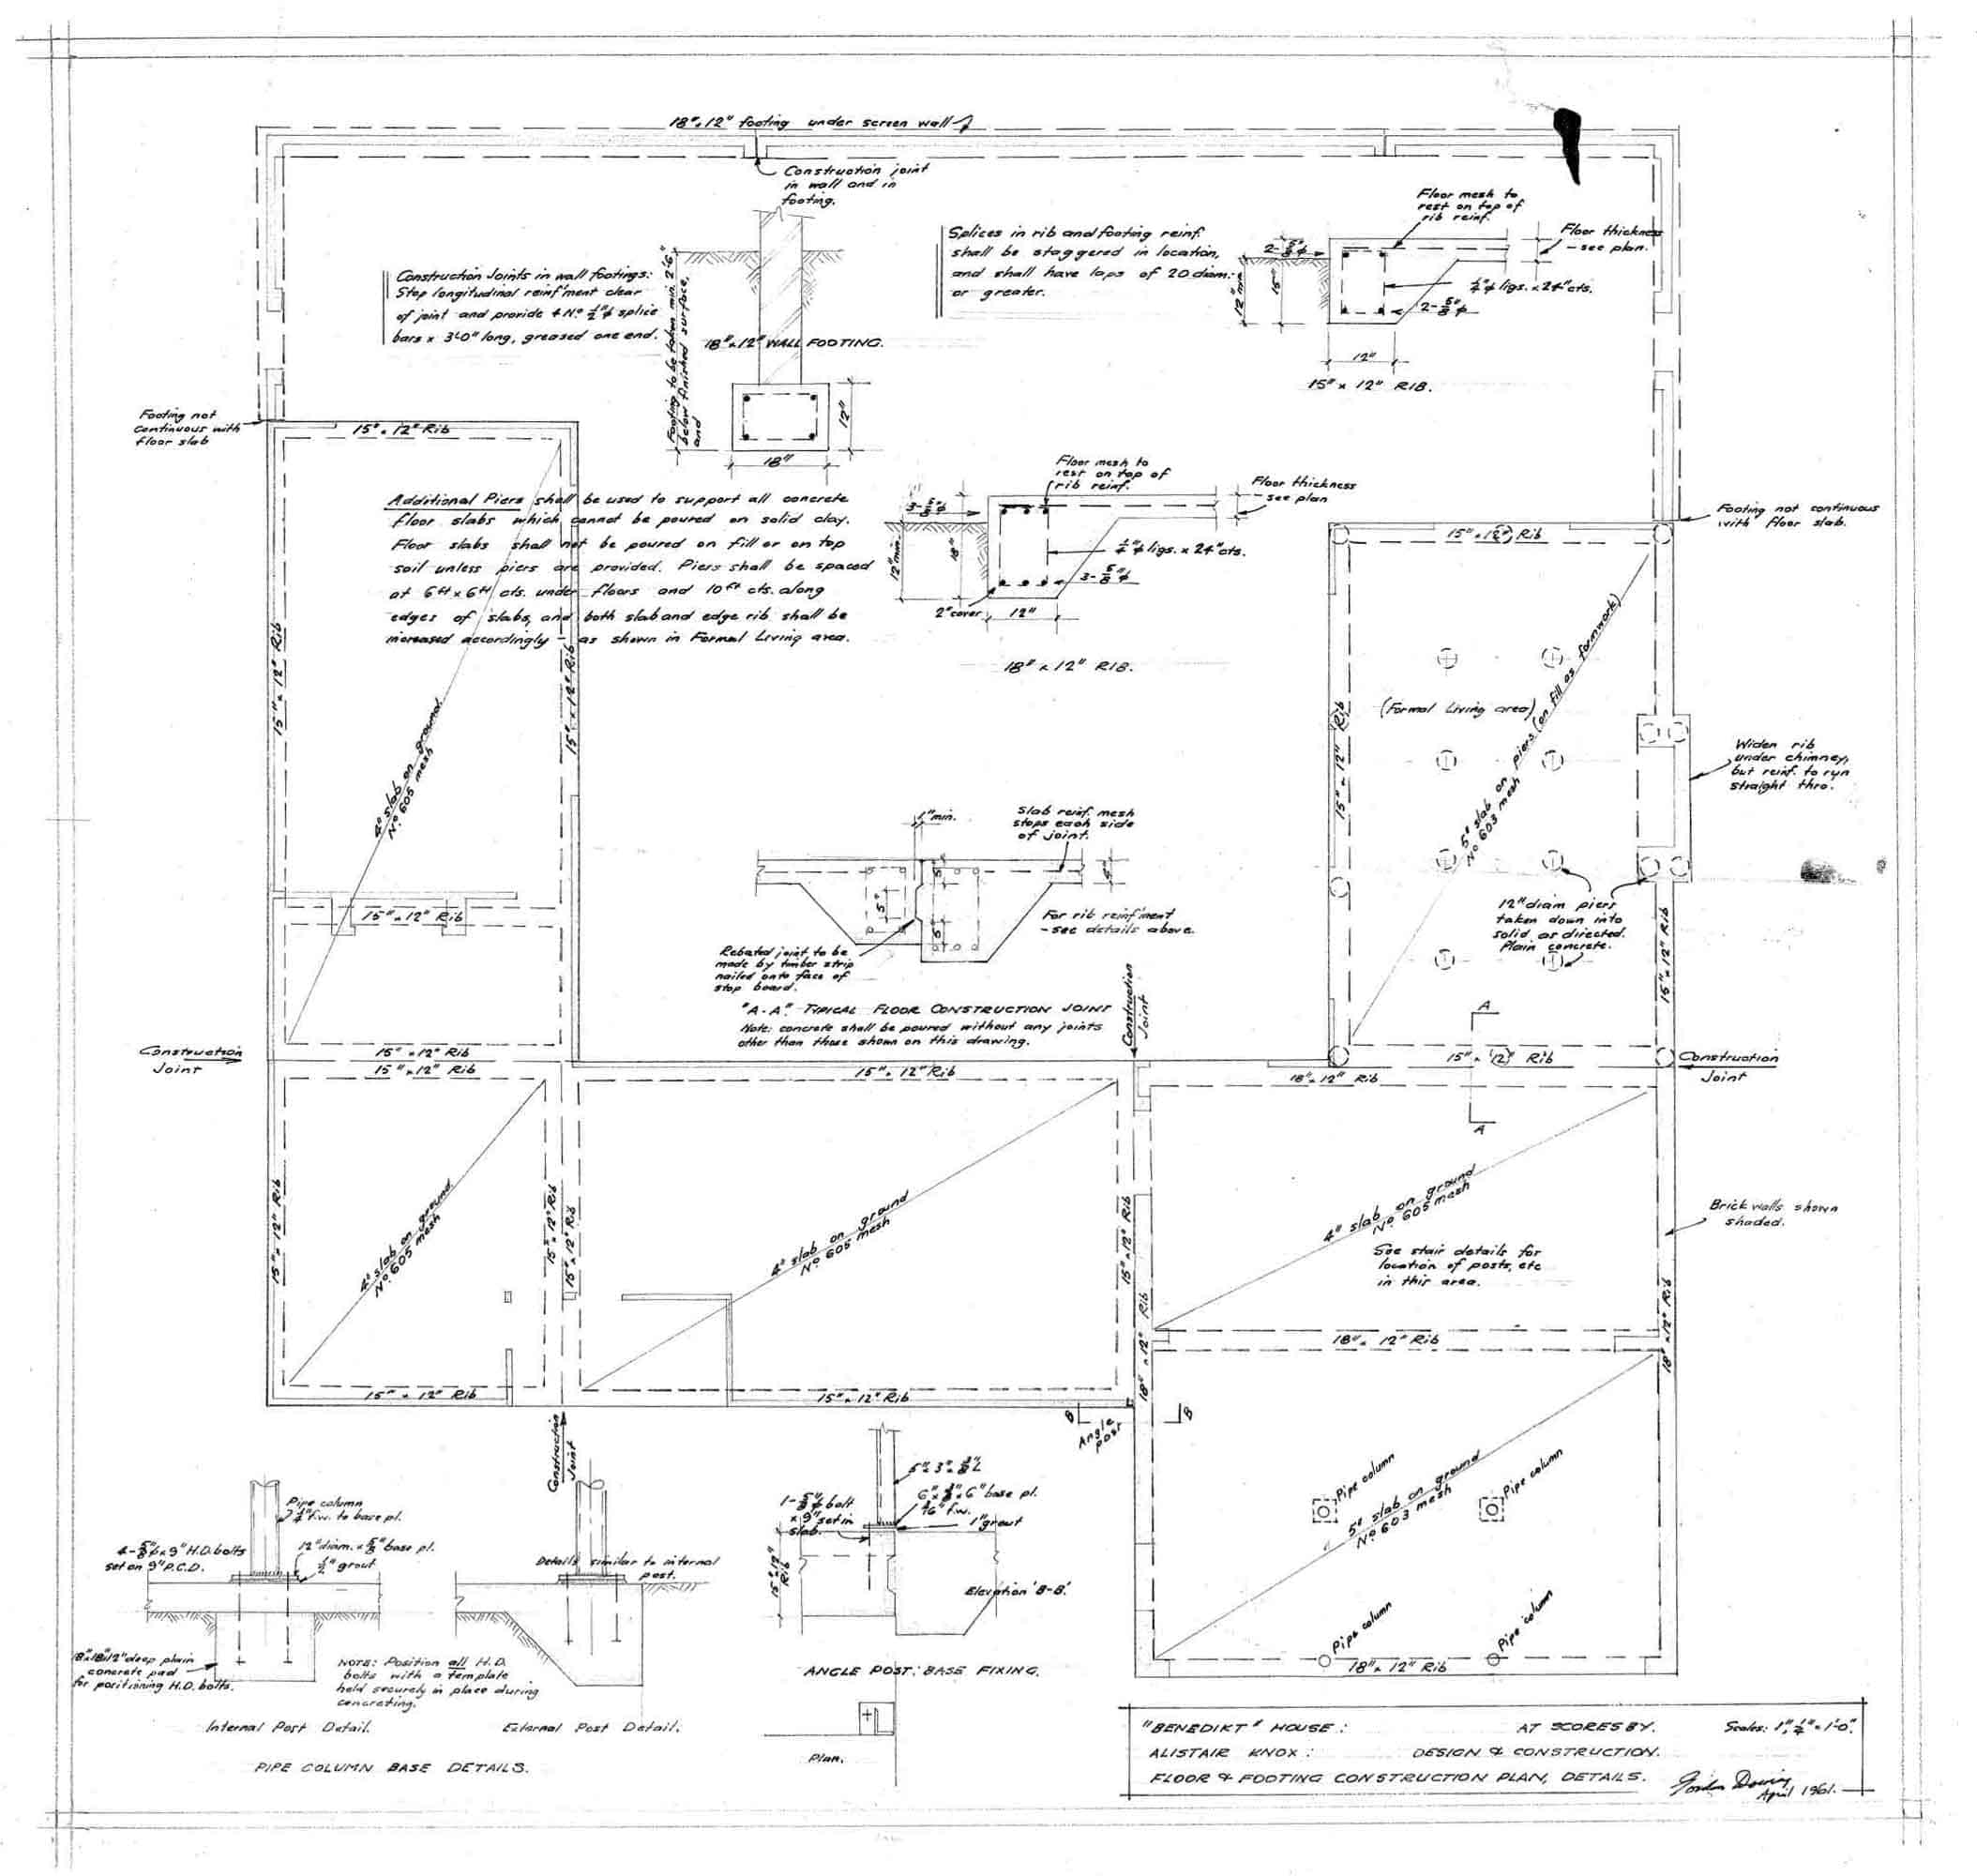 18" x 12" footing under screen wall
Construction joint
in wall and in
footing.
Construction Joints in wall footings:
Stop longitudinal reinf'ment clear
of joint and provide 4 No. ½"φ splice
bars x 3'-0" long, greased one end.
Footing to be taken min. 2'-6"
below finished surface,
and
18" x 12" WALL FOOTING.
12"
18"
Splices in rib and footing reinf.
shall be staggered in location,
and shall have laps of 20 diam.
or greater.
Floor mesh to
rest on top of
rib reinf.
Floor thickness
- see plan.
2-⅝"φ
12" min.
15"
¼"φ ligs. x 24" cts.
2-⅝"φ
12"
15" x 12" RIB.
Footing not
continuous with
floor slab
15" x 12" Rib
Additional Piers shall be used to support all concrete
floor slabs which cannot be poured on solid clay.
Floor slabs shall not be poured on fill or on top
soil unless piers are provided. Piers shall be spaced
at 6ft x 6ft cts. under floors and 10ft cts. along
edges of slabs, and both slab and edge rib shall be
increased accordingly - as shown in Formal Living area.
Floor mesh to
rest on top of
rib reinf.
Floor thickness
- see plan
3-⅝"φ
12" min.
18"
¼"φ ligs. x 24" cts.
3-⅝"φ
2" cover
12"
18" x 12" RIB.
Footing not continuous
with floor slab.
15" x 12" Rib
15" x 12" Rib
15" x 12" Rib
4" slab on ground.
No. 605 mesh
15" x 12" Rib
(Formal Living area)
5" slab on piers (on fill as formwork)
No. 603 mesh
15" x 12" Rib
Widen rib
under chimney,
but reinf. to run
straight thro.
12" diam piers
taken down into
solid as directed.
Plain concrete.
15" x 12" Rib
1" min.
Slab reinf. mesh
stops each side
of joint.
5"
5"
5"
For rib reinf'ment
- see details above.
Rebated joint to be
made by timber strip
nailed onto face of
stop board.
"A-A". TYPICAL FLOOR CONSTRUCTION JOINT
Note: concrete shall be poured without any joints
other than those shown on this drawing.
Construction
Joint
A
A
Construction
Joint
15" x 12" Rib
15" x 12" Rib
15" x 12" Rib
18" x 12" Rib
15" x 12" Rib
Construction
Joint
15" x 12" Rib
4" slab on ground.
No. 605 mesh
15" x 12" Rib
15" x 12" Rib
4" slab on ground
No. 605 mesh
15" x 12" Rib
4" slab on ground
No. 605 mesh
See stair details for
location of posts, etc
in this area.
Brick walls shown
shaded.
18" x 12" Rib
18" x 12" Rib
18" x 12" Rib
15" x 12" Rib
15" x 12" Rib
B
B
Angle
post
Construction
Joint
5" slab on ground
No. 603 mesh
Pipe column
Pipe column
Pipe column
Pipe column
18" x 12" Rib
Pipe column
¼" f.w. to base pl.
4-⅝"φ x 9" H.D. bolts
set on 9" P.C.D.
12" diam. x ⅝" base pl.
½" grout
18" x 18" x 12" deep plain
concrete pad
for positioning H.D. bolts.
NOTE: Position all H.D.
bolts with a template
held securely in place during
concreting.
Internal Post Detail.
Details similar to internal
post.
External Post Detail.
PIPE COLUMN BASE DETAILS.
1-⅝"φ bolt
x 9" set in
slab.
6" base pl.
1" grout
15" x 12"
Rib
Elevation 'B-B'.
ANGLE POST: BASE FIXING.
Plan.
"BENEDIKT" HOUSE: AT SCORESBY. Scales: 1", ¼" = 1'-0".
ALISTAIR KNOX: DESIGN & CONSTRUCTION.
FLOOR & FOOTING CONSTRUCTION PLAN, DETAILS.
April 1961.